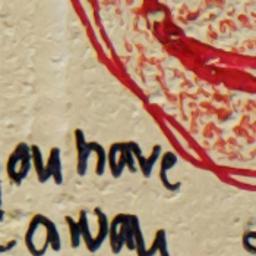 ou have
away